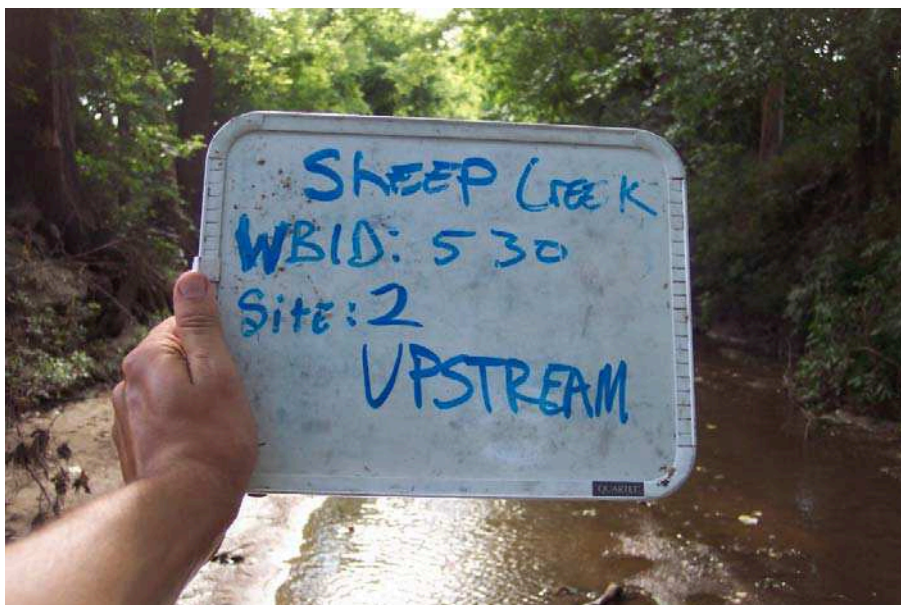 SHEEP CREEK
WBID: 530
Site: 2
UPSTREAM
QUARTET